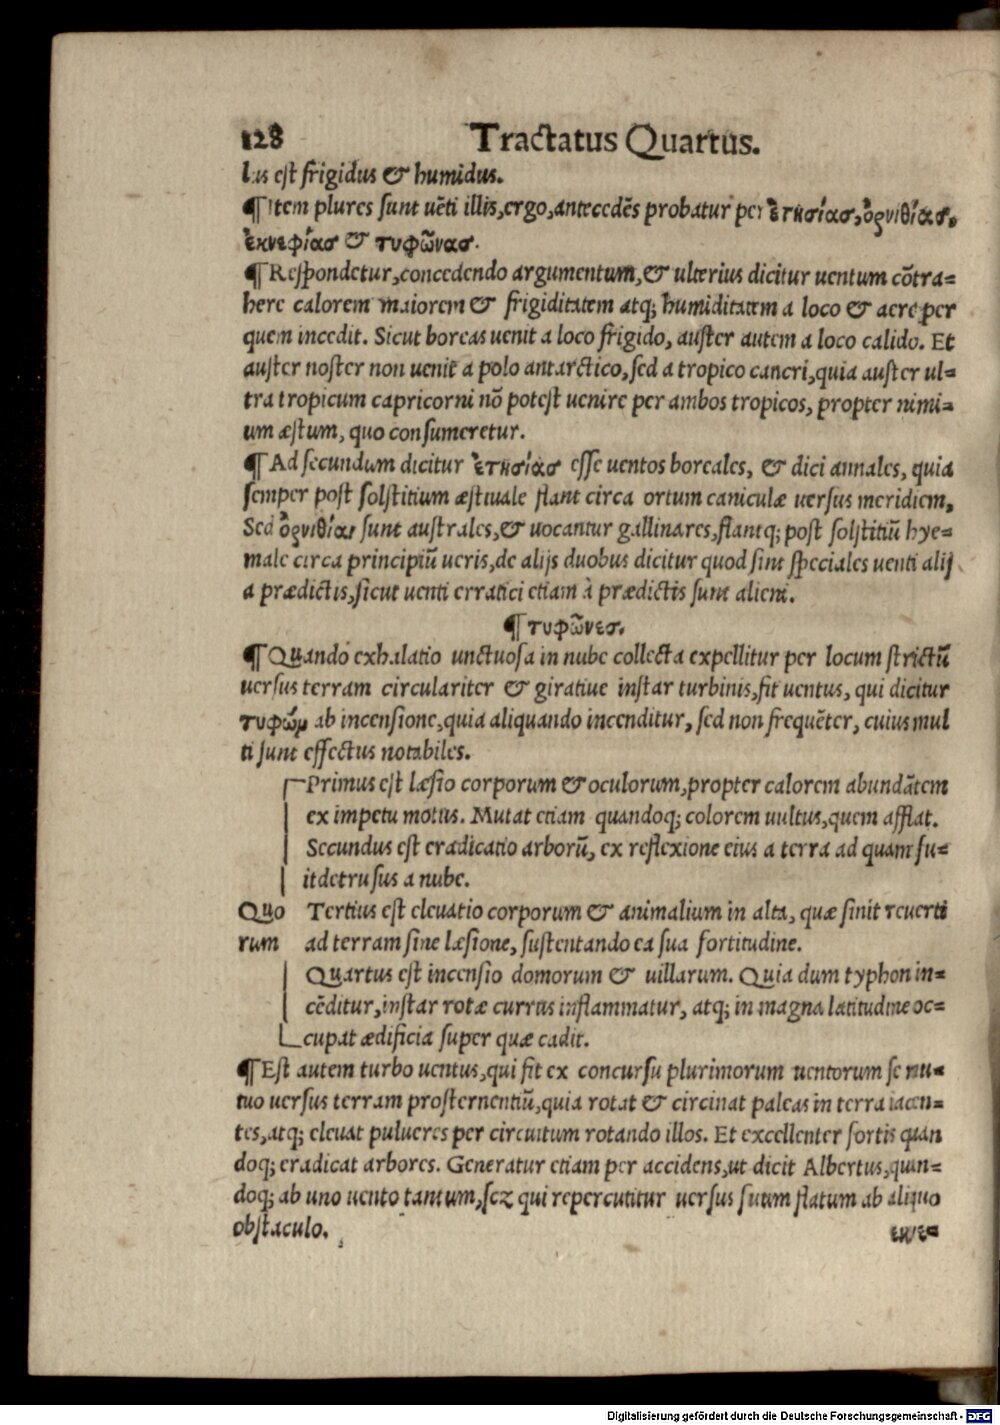 128 Tractatus Quartus.
lus est frigidus & humidus.
¶ Item plures sunt uēti illis, ergo, antecedēs probatur per ἐτησίας, ὀρνιθίας,
ἐκνεφίας & τυφῶνας.
¶ Respondetur, concedendo argumentum, & ulterius dicitur uentum cōtra=
here calorem maiorem & frigiditatem atq; humiditatem a loco & aere per
quem incedit. Sicut boreas uenit a loco frigido, auster autem a loco calido. Et
auster noster non uenit a polo antarctico, sed a tropico cancri, quia auster ul=
tra tropicum capricorni nō potest uenire per ambos tropicos, propter nimi=
um æstum, quo consumeretur.
¶ Ad secundum dicitur ἐτησίας esse uentos boreales, & dici annales, quia
semper post solstitium æstiuale flant circa ortum caniculæ uersus meridiem,
Sed ὀρνιθίαι sunt australes, & uocantur gallinares, flantq; post solstitiū hye=
male circa principiū ueris, de alijs duobus dicitur quod sint speciales uenti alij
a prædictis, sicut uenti erratici etiam à prædictis sunt alieni.
¶ τυφῶνες.
¶ QUando exhalatio unctuosa in nube collecta expellitur per locum strictū
uersus terram circulariter & giratiue instar turbinis, fit uentus, qui dicitur
τυφώμ ab incensione, quia aliquando incenditur, sed non frequēter, cuius mul
ti sunt effectus notabiles.
Primus est læsio corporum & oculorum, propter calorem abundātem
ex impetu motus. Mutat etiam quandoq; colorem uultus, quem afflat.
Secundus est eradicatio arborū, ex reflexione eius a terra ad quam fu=
it detrusus a nube.
Quo Tertius est eleuatio corporum & animalium in alta, quæ sinit reuerti
rum ad terram sine læsione, sustentando ea sua fortitudine.
QUartus est incensio domorum & uillarum. Quia dum typhon in=
cēditur, instar rotæ currus inflammatur, atq; in magna latitudine oc=
cupat ædificia super quæ cadit.
¶ Est autem turbo uentus, qui fit ex concursu plurimorum uentorum se mu=
tuo uersus terram prosternentiū, quia rotat & circinat paleas in terra iacen=
tes, atq; eleuat pulueres per circuitum rotando illos. Et excellenter fortis quan
doq; eradicat arbores. Generatur etiam per accidens, ut dicit Albertus, quan=
doq; ab uno uento tantum, scz qui repercutitur uersus suum flatum ab aliquo
obstaculo.
Digitalisierung gefördert durch die Deutsche Forschungsgemeinschaft - DFG